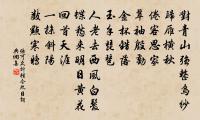 對青山強整烏紗
歸雁橫秋
倦客思家
翠袖殷勤
金杯錯落
玉手琵琶
人老去西風白髮
蝶愁來明日黃花
回首天涯
一抹斜陽
數點寒鴉